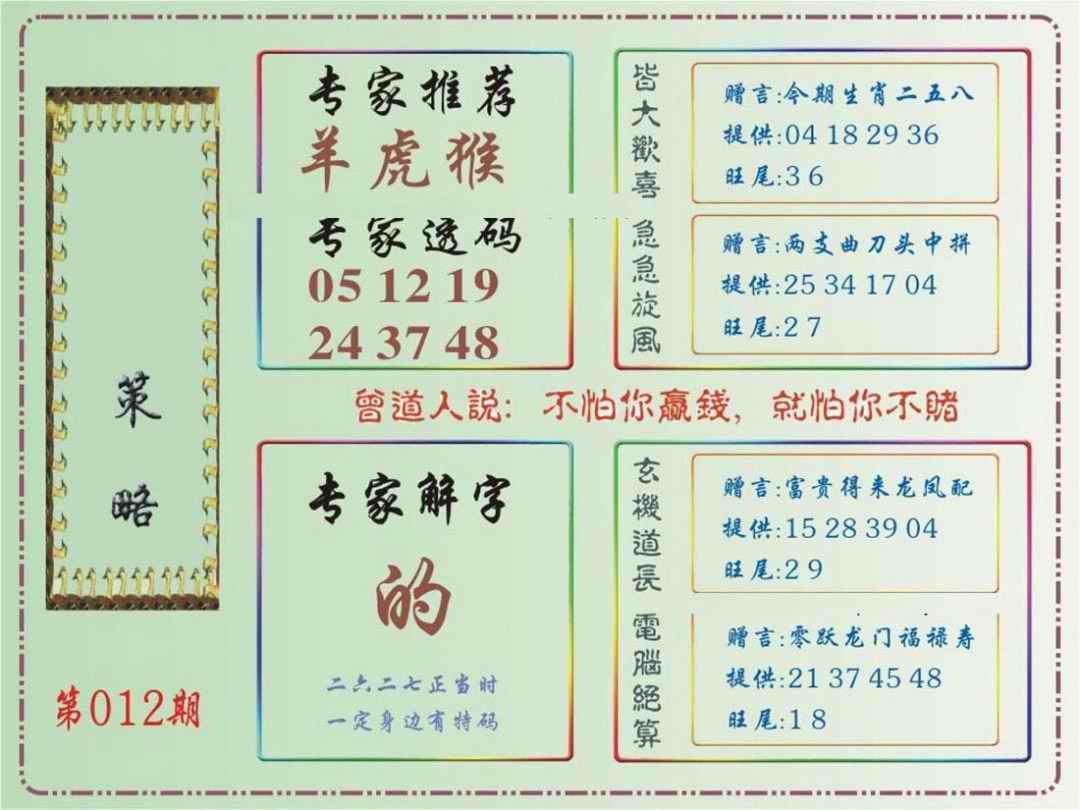 策略
第012期
专家推荐
羊虎猴
专家透码
05 12 19
24 37 48
皆大歡喜
赠言:今期生肖二五八
提供:04 18 29 36
旺尾:3 6
急急旋風
赠言:两支曲刀头中拼
提供:25 34 17 04
旺尾:2 7
曾道人説: 不怕你贏錢, 就怕你不賭
专家解字
的
二六二七正当时
一定身边有特码
玄機道長
赠言:富贵得来龙凤配
提供:15 28 39 04
旺尾:2 9
電腦絕算
赠言:零跃龙门福禄寿
提供:21 37 45 48
旺尾:1 8